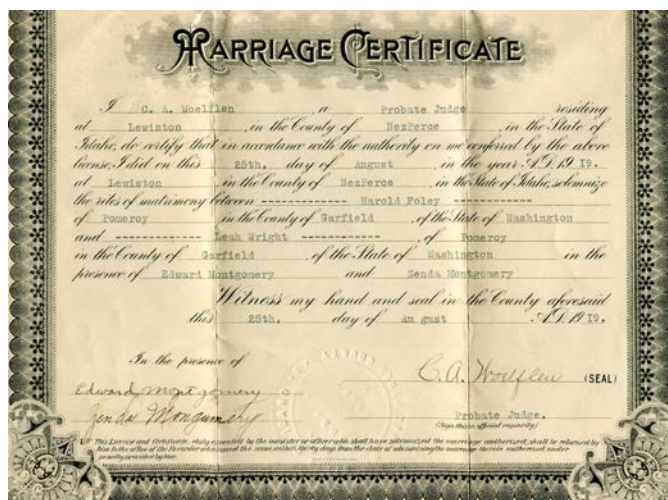 MARRIAGE CERTIFICATE
I C. A. Woelflen a Probate Judge residing
at Lewiston , in the County of NezPerce in the State of
Idaho, do certify that in accordance with the authority on me conferred by the above
license, I did on this 25th. day of August in the year A.D. 19 19.
at Lewiston in the County of NezPerce , in the State of Idaho, solemnize
the rites of matrimony between ------------ Harold Foley ------------
of Pomeroy in the County of Garfield , of the State of Washington
and ------------ Leah Wright ------------ , of Pomeroy
in the County of Garfield , of the State of Washington in the
presence of Edward Montgomery and Senda Montgomery
Witness my hand and seal in the County aforesaid
this 25th. day of Au gust A.D. 19 19.
In the presence of
C. A. Woelflen (SEAL)
Edward Montgomery
Zenda Mongumery
Probate Judge.
(Sign this in official capacity)
This License and Certificate, duly executed by the minister or other who shall have solemnized the marriage authorized, shall be returned by
him to the office of the Recorder who issued the same, within thirty days from the date of solemnizing the marriage therein authorized under
penalty provided by law.